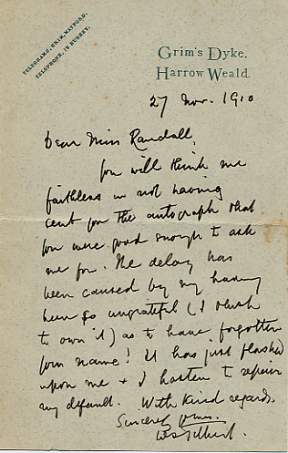 TELEGRAMS, GRIM, WATFORD.
TELEPHONE, 19 BUSHEY.
Grim's Dyke,
Harrow Weald.
27 Nov. 1910
Dear Miss Randall,
You will think me
faithless in not having
sent you the autograph that
you were good enough to ask
me for. The delay has
been caused by my having
been so ungrateful (I blush
to own it) as to have forgotten
your name! It has just flashed
upon me & I hasten to repair
my default. With kind regards,
Sincerely Yours,
WS Gilbert.